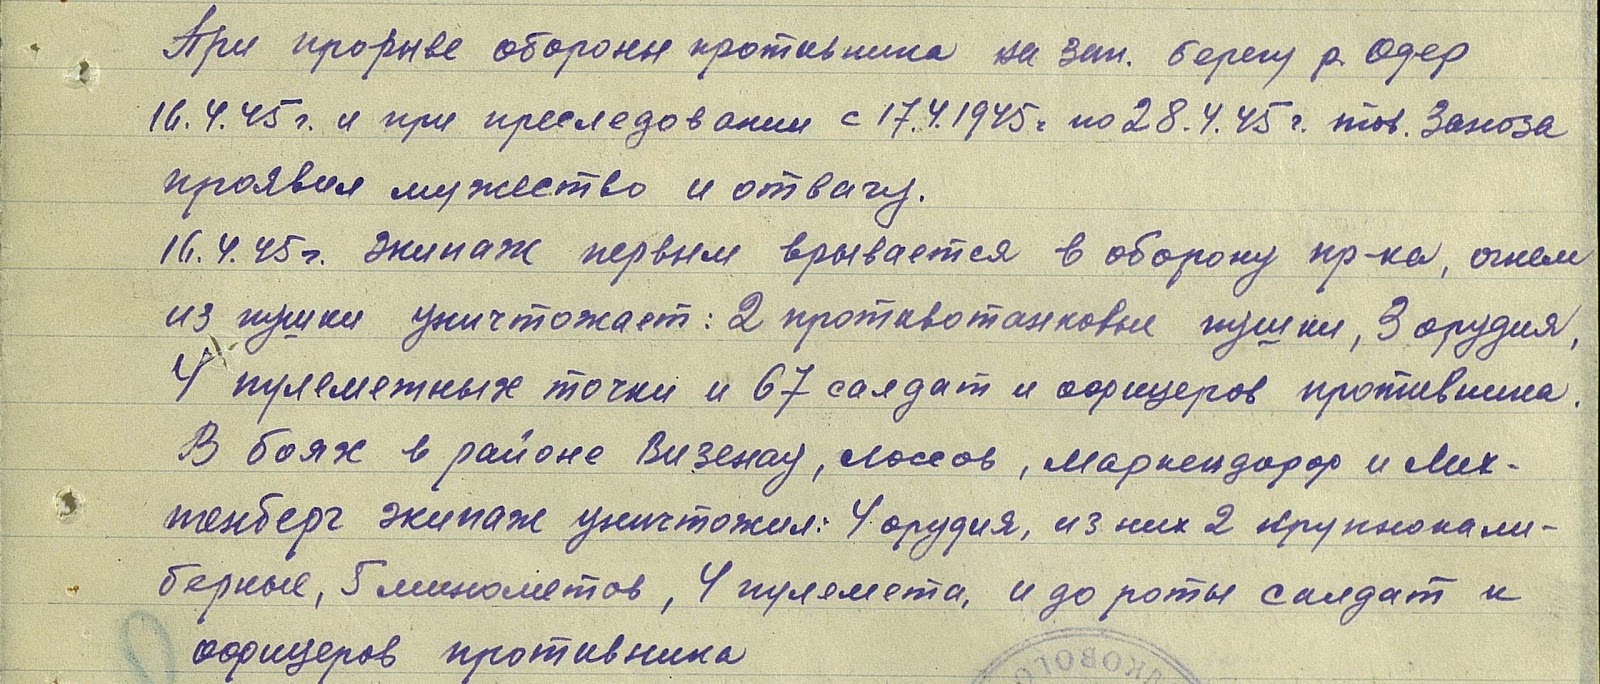 При прорыве обороны противника на зап. берегу р. Одер
16.4.45г. и при преследовании с 17.4.1945г. по 28.4.45г. тов. Заноза
проявил мужество и отвагу.
16.4.45г. экипаж первым врывается в оборону пр-ка, огнем
из пушки уничтожает: 2 противотанковые пушки, 3 орудия,
4 пулеметных точки и 67 салдат и офицеров противника.
В боях в районе Визенау, Лоссов, Маркендорф и Лих-
тенберг экипаж уничтожил: 4 орудия, из них 2 крупнокали-
берные, 5 минометов, 4 пулемета, и до роты салдат и
офицеров противника